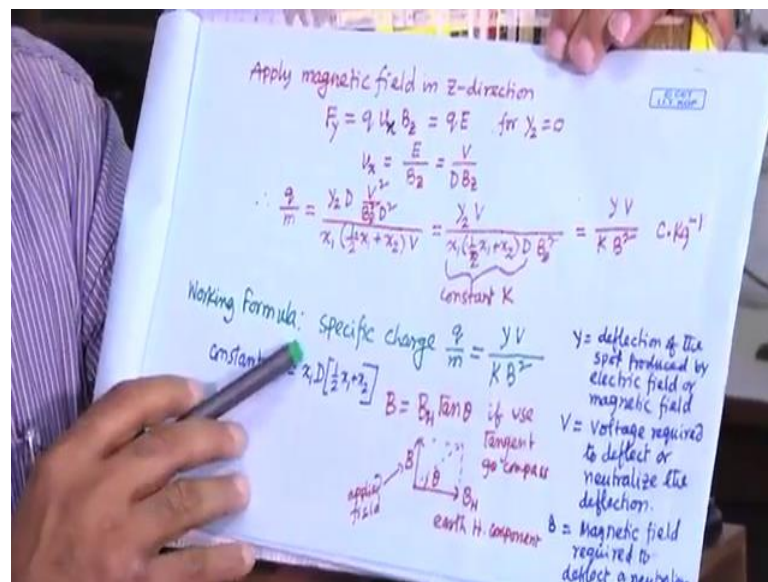 Apply magnetic field in Z-direction
I.I.T. KGP
F_y = q u_x B_z = qE for y_2 = 0
u_x = E/B_z = V/(D B_z)
∴ q/m = (y_2 D V²/(B_z² D²)) / (x_1 (½x_1 + x_2) V) = y_2 V / (x_1 (½x_1 + x_2) D B_z²) = yV / (K B²) C·Kg⁻¹
constant K
Working formula: specific charge q/m = yV / (K B²)
constant = x_1 D [½x_1 + x_2]
B = B_H Tanθ if use
Tangent
compass
B
θ
B_H
applied
field
earth H. component
y = deflection of the
spot produced by
electric field or
magnetic field
V = Voltage required
to deflect or
neutralize the
deflection.
B = Magnetic field
required to